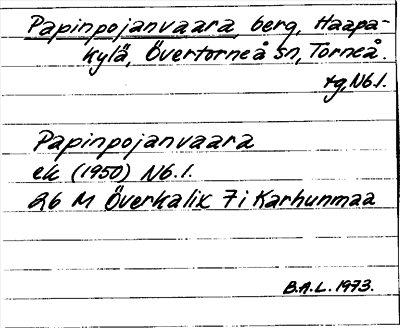 Papinpojanvaara, berg, Haapa-
kylä, Övertorneå sn, Torneå.
tg, Nb.l.
Papinpojanvaara
ek (1950) Nb.l.
26 M Överkalix 7i Karhunmaa
B.A.L. 1973.